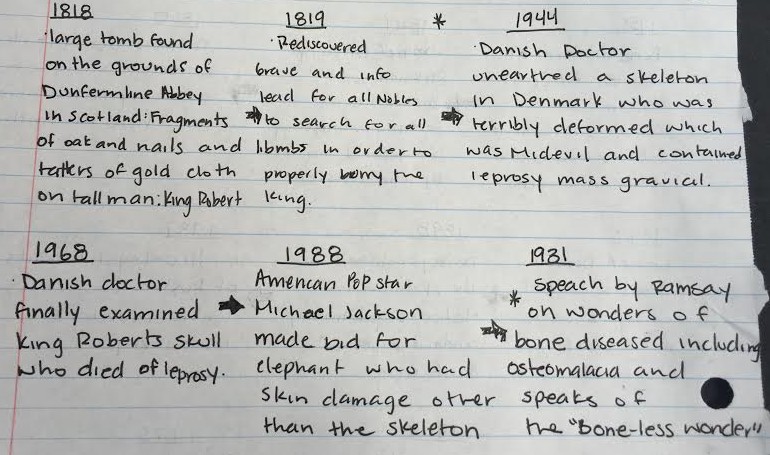 1818
·large tomb found
on the grounds of
Dunfermline Abbey
in Scotland: Fragments
of oak and nails and
tatters of gold cloth
on tall man: King Robert
1819
·Rediscovered
grave and info
lead for all Nobles
to search for all
limbs in order to
properly bury the
king.
* 1944
·Danish Doctor
unearthed a skeleton
in Denmark who was
terribly deformed which
was Midevil and contained
leprosy mass gravical.
1968
·Danish doctor
finally examined
King Roberts skull
who died of leprosy.
1988
American Pop star
Michael Jackson
made bid for
elephant who had
skin damage other
than the skeleton
1931
* speach by Ramsay
on wonders of
bone diseased including
osteomalacia and
speaks of
the "Bone-less wonder"